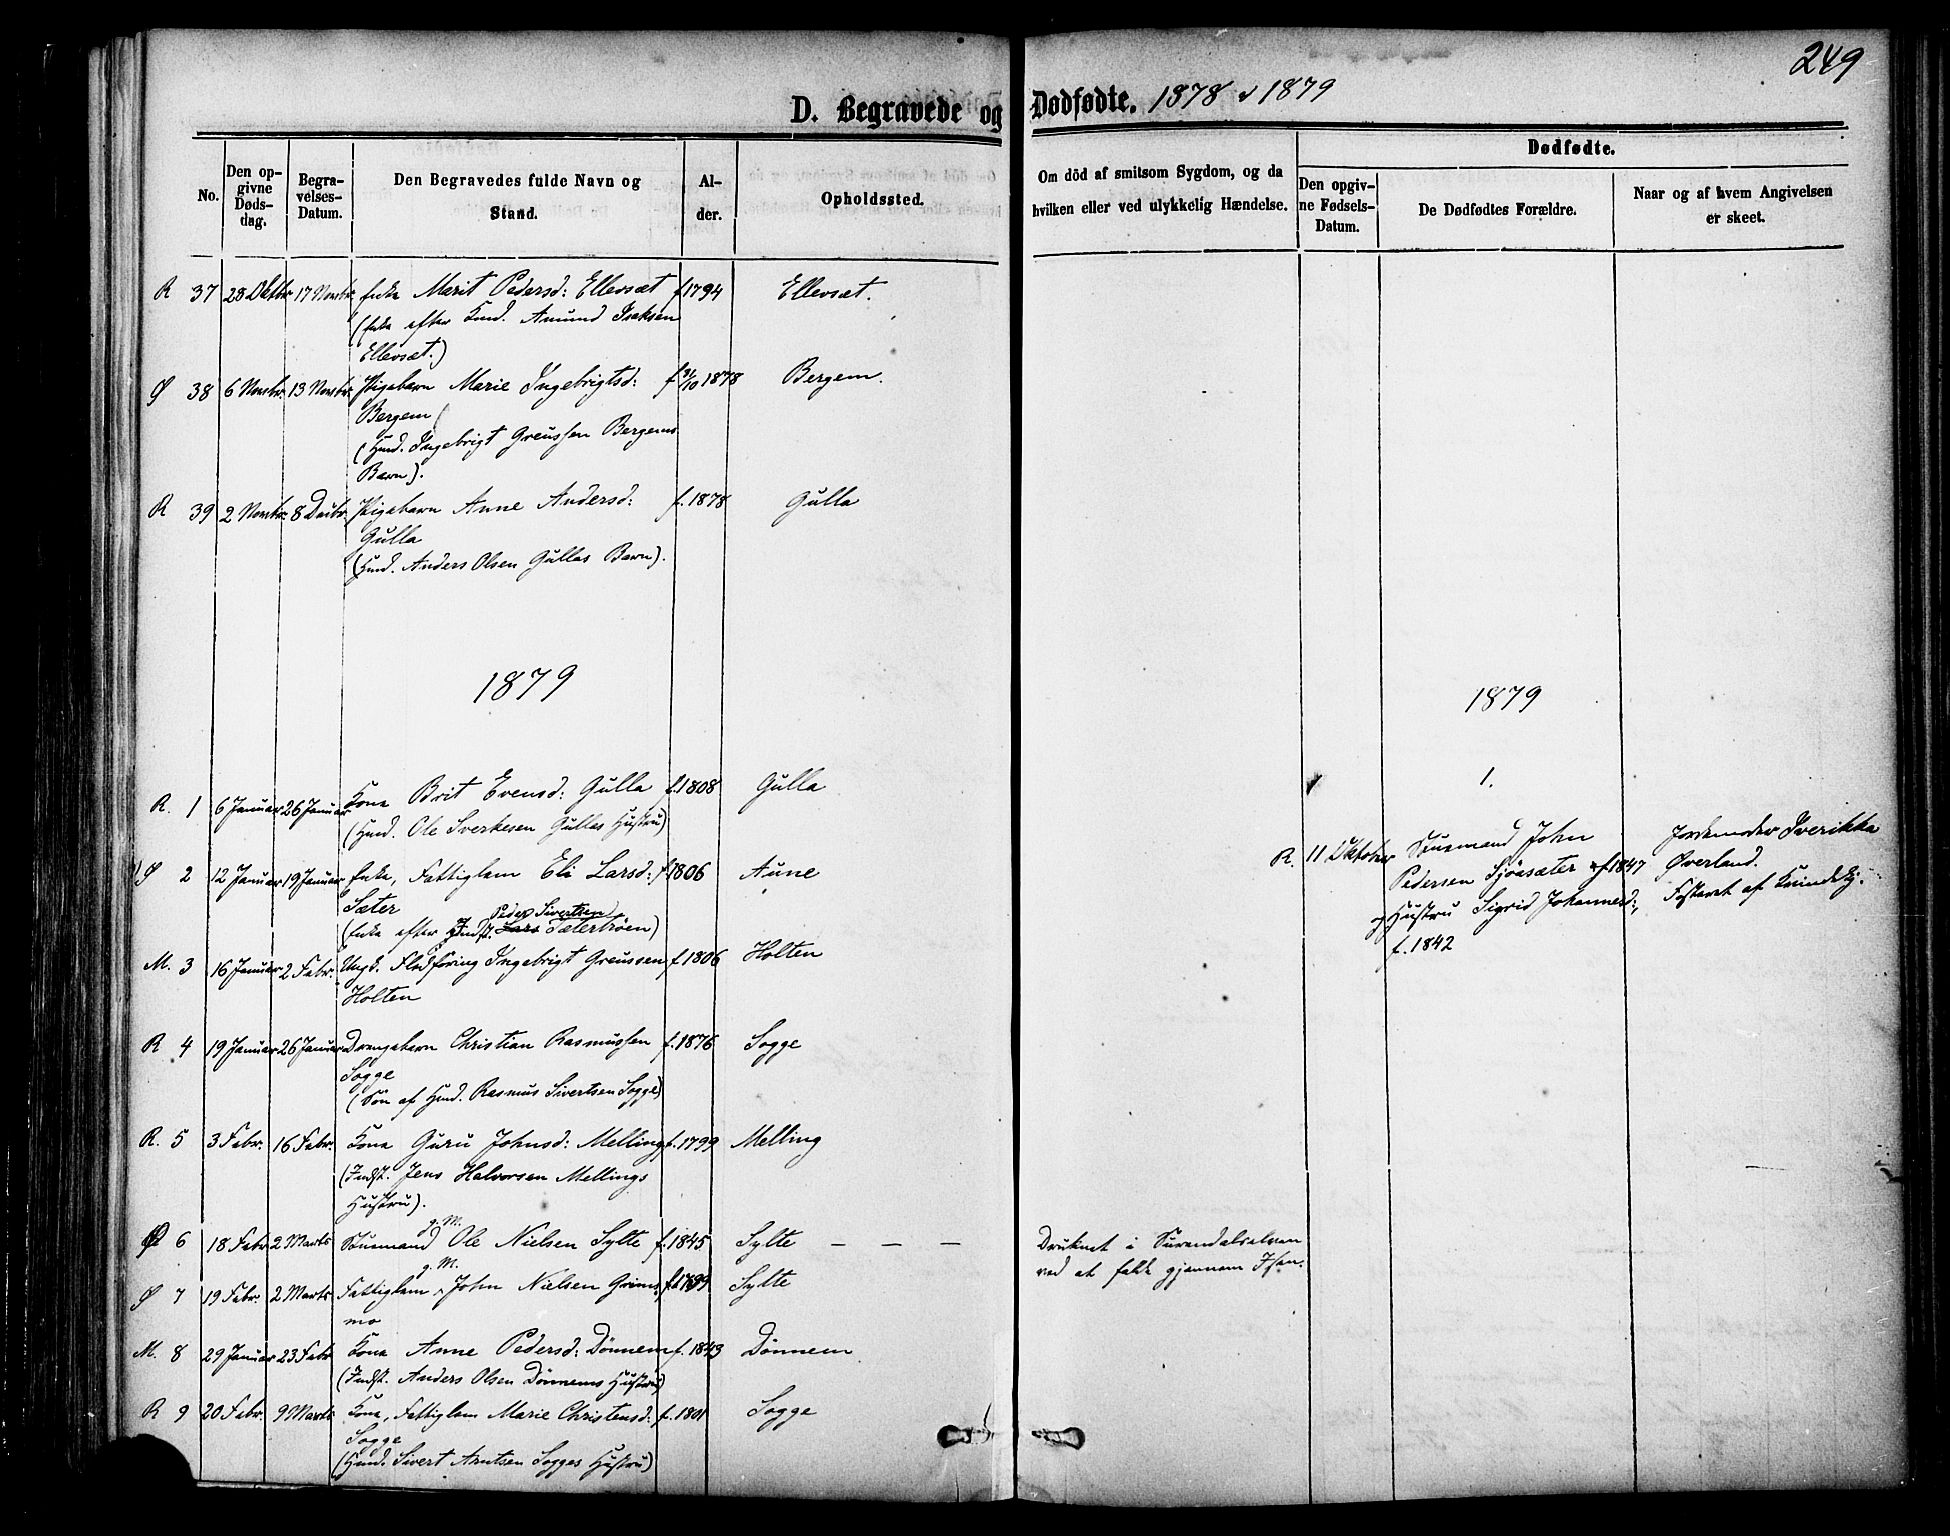 249
D. Begravede og Dødfødte. 1878 & 1879
No.
Den op-
givne
Døds-
dag.
Begra-
velses-
Datum.
Den Begravedes fulde Navn og
Stand.
Al-
der.
Opholdssted.
Om död af smitsom Sygdom, og da
hvilken eller ved ulykkelig Hændelse.
Dødfødte.
Den opgiv-
ne Fødsels-
Datum.
De Dødfødtes Forældre.
Naar og af hvem Angivelsen
er skeet.
R 37 28 Oktbr 17 Novbr. Enke Marit Pedersd: Ellevsæt f 1794 Ellevsæt.
(Enke efter Kaard. Amund Iseksen
Ellevsæt.)
Ø 38 6 Novbr. 13 Novbr. Pigebarn Marie Ingebrigtsd: f 31/10 1878 Bergem.
Bergem
(Gmd. Ingebrigt Greussen Bergems
Barn).
R 39 2 Novbr. 8 Decbr. Pigebarn Anne Andersd: f. 1878 Gulla
Gulla
(Gmd. Anders Olsen Gullas Barn).
1879
1879
R. 1 6 Januar 26 Januar Kone Brit Evensd: Gulla f. 1808 Gulla
(Gmd. Ole Sverkesen Gullas Hustru)
1.
R. 11 Oktober Husmand John
Pedersen Sjöasæter f 1847
og Hustru Sigrid Johannesd:,
f. 1842
Jordemoder Iverikka
Øverland.
Fosteret af Kvindekj.
Ø 2 12 Januar 19 Januar Enke, Fattiglem Eli Larsd: f 1806 Aune
Sæter
Peder Sivertsen
(Enke efter Indst. Lars Sæterbröen)
M. 3 16 Januar 2 Febr. Ungk. Flodföring Ingebrigt Greussen f 1806 Holten
Holten
R 4 19 Januar 26 Januar Drengebarn Christian Rasmussen f. 1876 Sogge
Sogge
(Sön af Gmd. Rasmus Sivertsen Sogge)
R. 5 3 Febr. 16 Febr. Kone Guru Johnsd: Melling f. 1799 Melling
(Indst. Jens Halvorsen Mellings
Hustru).
g. M.
Ø 6 18 Febr 2 Marts Husmand Ole Nielsen Sylte f. 1845 Sylte — — — Druknet i Surendalselven
ved at falde gjennem Isen.
g. M.
Ø 7 19 Febr. 2 Marts Fattiglem John Nielsen Grims- f. 1799 Sylte
mo
M. 8 29 Januar 23 Febr Kone Anne Pedersd: Dönnem f. 1843 Dönnem
(Indst. Anders Olsen Dönnems Hustru)
R 9 20 Febr. 9 Marts Kone, Fattiglem Marie Christensd: f. 1801 Sogge
Sogge
(Gmd. Sivert Arntsen Sogges Hustru)